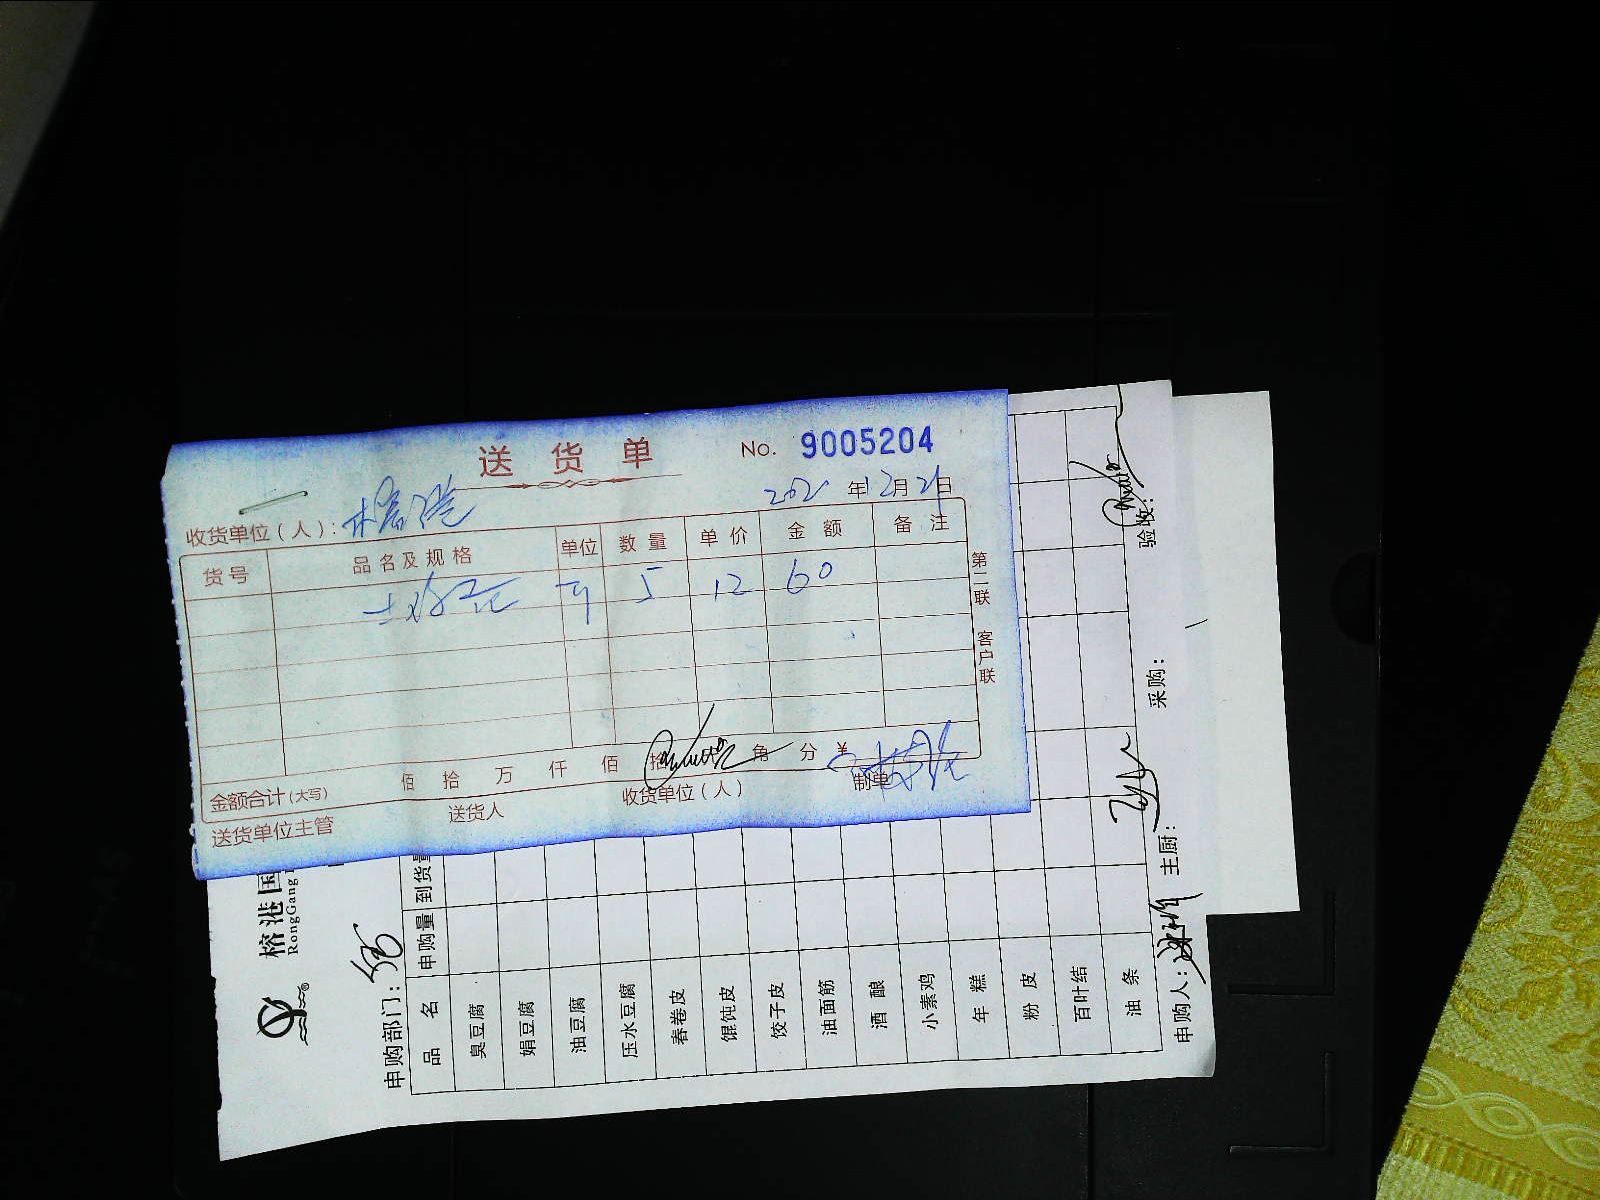 送货单
No. 9005204
收货单位（人）：榕港
年12月21日
货号 品名及规格 单位 数量 单价 金额 备注
5 12 60
第二联 客户联
金额合计（大写） 佰 拾 万 仟 佰 拾 角 分 ￥
送货单位主管 送货人 收货单位（人） 制单
榕港国
RongGang
申购部门：
品名 申购量 到货量
臭豆腐
娟豆腐
油豆腐
压水豆腐
春卷皮
馄饨皮
饺子皮
油面筋
酒酿
小素鸡
年糕
粉皮
百叶结
油条
申购人： 主厨： 采购： 验收：